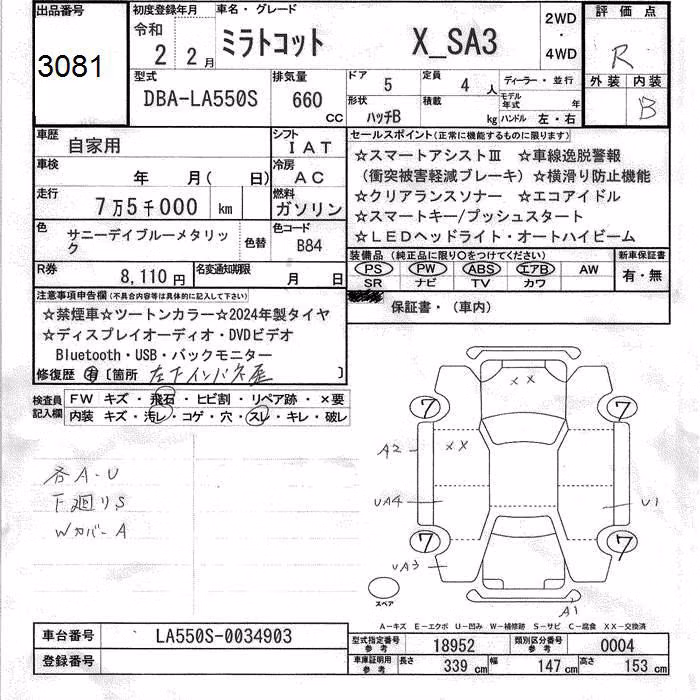 出品番号
3081
初度登録年月
令和
2 2月
車名・グレード
ミラトコット X_SA3
2WD
・
4WD
評価点
R
外装 内装
B
型式
DBA-LA550S
排気量
660 cc
ドア 5
定員 4 人
ディーラー・並行
形状 ハッチB
積載 kg
モデル年式 年
ハンドル 左・右
車歴 自家用
シフト IAT
車検 年 月( 日)
冷房 AC
走行 7万5千000 km
燃料 ガソリン
色 サニーデイブルーメタリック
色替
色コード B84
R券 8,110円
名変通知期限 月 日
セールスポイント(正常に機能するものに限ります)
☆スマートアシストⅢ ☆車線逸脱警報
(衝突被害軽減ブレーキ)☆横滑り防止機能
☆クリアランスソナー ☆エコアイドル
☆スマートキー/プッシュスタート
☆LEDヘッドライト・オートハイビーム
装備品(純正品に限り○をつけてください)
新車保証書
PS PW ABS エアB AW
SR ナビ TV カワ
有・無
保証書・(車内)
注意事項申告欄(不具合内容等は具体的に記入して下さい)
☆禁煙車☆ツートンカラー☆2024年製タイヤ
☆ディスプレイオーディオ・DVDビデオ
Bluetooth・USB・バックモニター
修復歴 有 〔箇所 左下インパネ歴 〕
検査員記入欄
FW キズ・飛石・ヒビ割・リペア跡・×要
内装 キズ・汚レ・コゲ・穴・スレ・キレ・破レ
各A-U
下廻りS
Wカバ-A
XX
7 7
A2 XX
UA4 U1
7 7
UA3
A1
スペア
A-キズ E-エクボ U-凹み W-補修跡 S-サビ C-腐食 XX-交換済
車台番号 LA550S-0034903
登録番号
型式指定番号 参考 18952
類別区分番号 参考 0004
車庫証明用 参考 長さ 339 cm 幅 147 cm 高さ 153 cm